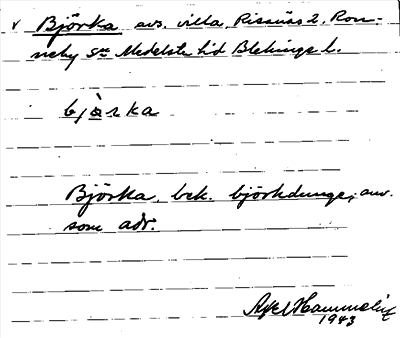 v Björka avs. villa, Risanäs 2, Ron-
neby sn Medelsta hd Blekinge l.
bjö̀rka
Björka, bet. björkdunge; anv.
som adr.
Axel Hammelin
1943